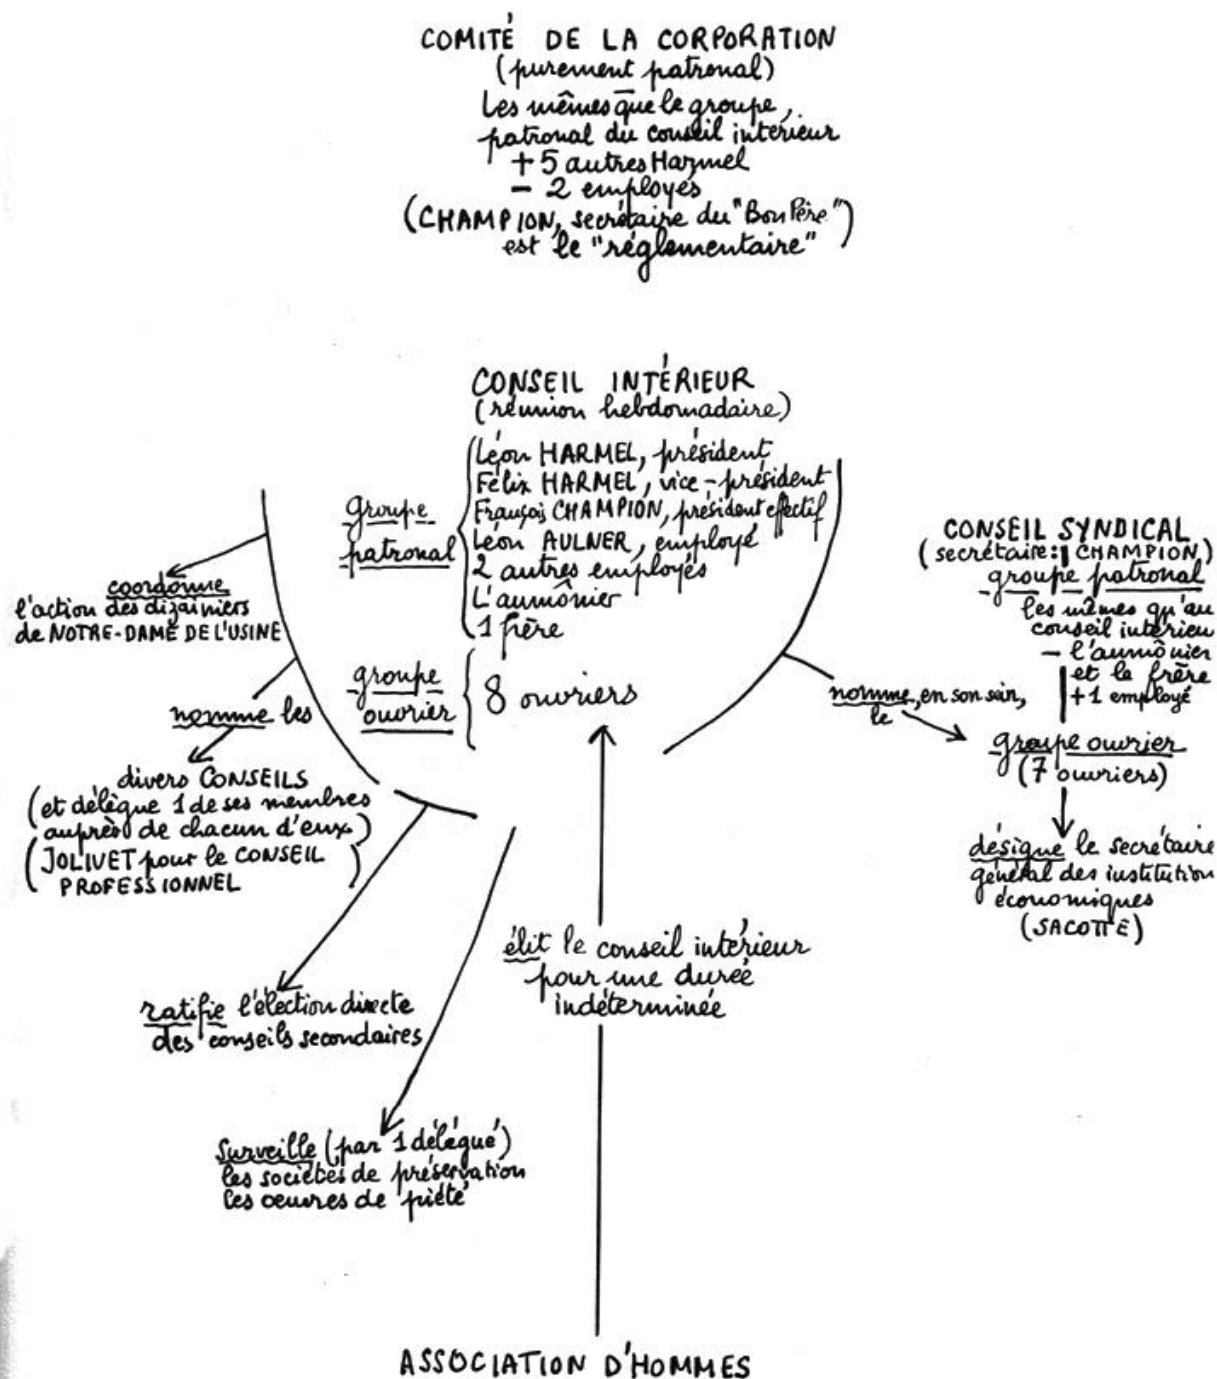 COMITÉ DE LA CORPORATION
(purement patronal)
Les mêmes que le groupe
patronal du conseil intérieur
+ 5 autres Harmel
- 2 employés
(CHAMPION, secrétaire du "Bon Père")
est le "réglementaire"
CONSEIL INTÉRIEUR
(réunion hebdomadaire)
groupe
patronal
Léon HARMEL, président
Félix HARMEL, vice-président
François CHAMPION, président effectif
Léon AULNER, employé
2 autres employés
L'aumônier
1 frère
groupe
ouvrier
8 ouvriers
coordonne
l'action des dizainiers
de NOTRE-DAME DE L'USINE
nomme les
divers CONSEILS
(et délègue 1 de ses membres
auprès de chacun d'eux)
(JOLIVET pour le CONSEIL
PROFESSIONNEL)
ratifie l'élection directe
des conseils secondaires
surveille (par 1 délégué)
les sociétés de préservation
les oeuvres de piété
élit le conseil intérieur
pour une durée
indéterminée
nomme, en son sein,
le
CONSEIL SYNDICAL
(secrétaire: CHAMPION)
groupe patronal
les mêmes qu'au
conseil intérieu
- l'aumônier
et le frère
+ 1 employé
groupe ouvrier
(7 ouvriers)
désigne le secrétaire
général des institution
économiques
(SACOTTE)
ASSOCIATION D'HOMMES